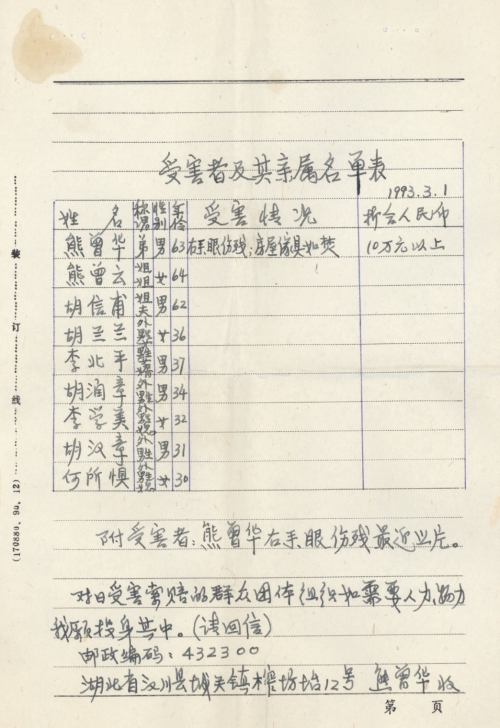 受害者及其亲属名单表
1993.3.1
姓 名 称谓 性别 年龄 受害情况 折合人民币
熊曾华 弟 男 63 右手眼伤残;房屋傢具如焚 10万元以上
熊曾云 姐姐 女 64
胡信甫 姐夫 男 62
胡兰兰 外甥女 女 36
李北平 甥婿 男 37
胡润章 外甥 男 34
李学美 外甥媳 女 32
胡汉章 外甥 男 31
何所惧 外甥媳 女 30
附受害者:熊曾华右手、眼伤残最近照片。
对日受害索赔的群众团体组织如需要人力、物力
我愿投身其中。(请回信)
邮政编码:432300
湖北省汉川县城关镇榨坊台12号 熊曾华收
第 页
装 订 线